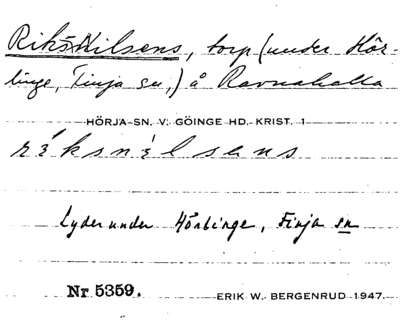 Riks-Nilsens, torp (under Hör-
linge, Finja sn,) å Ravnahalla
HÖRJA SN. V. GÖINGE HD. KRIST. 1
ríksnìlsens
Lyder under Hörlinge, Finja sn
Nr 5359.
ERIK W. BERGENRUD 1947.